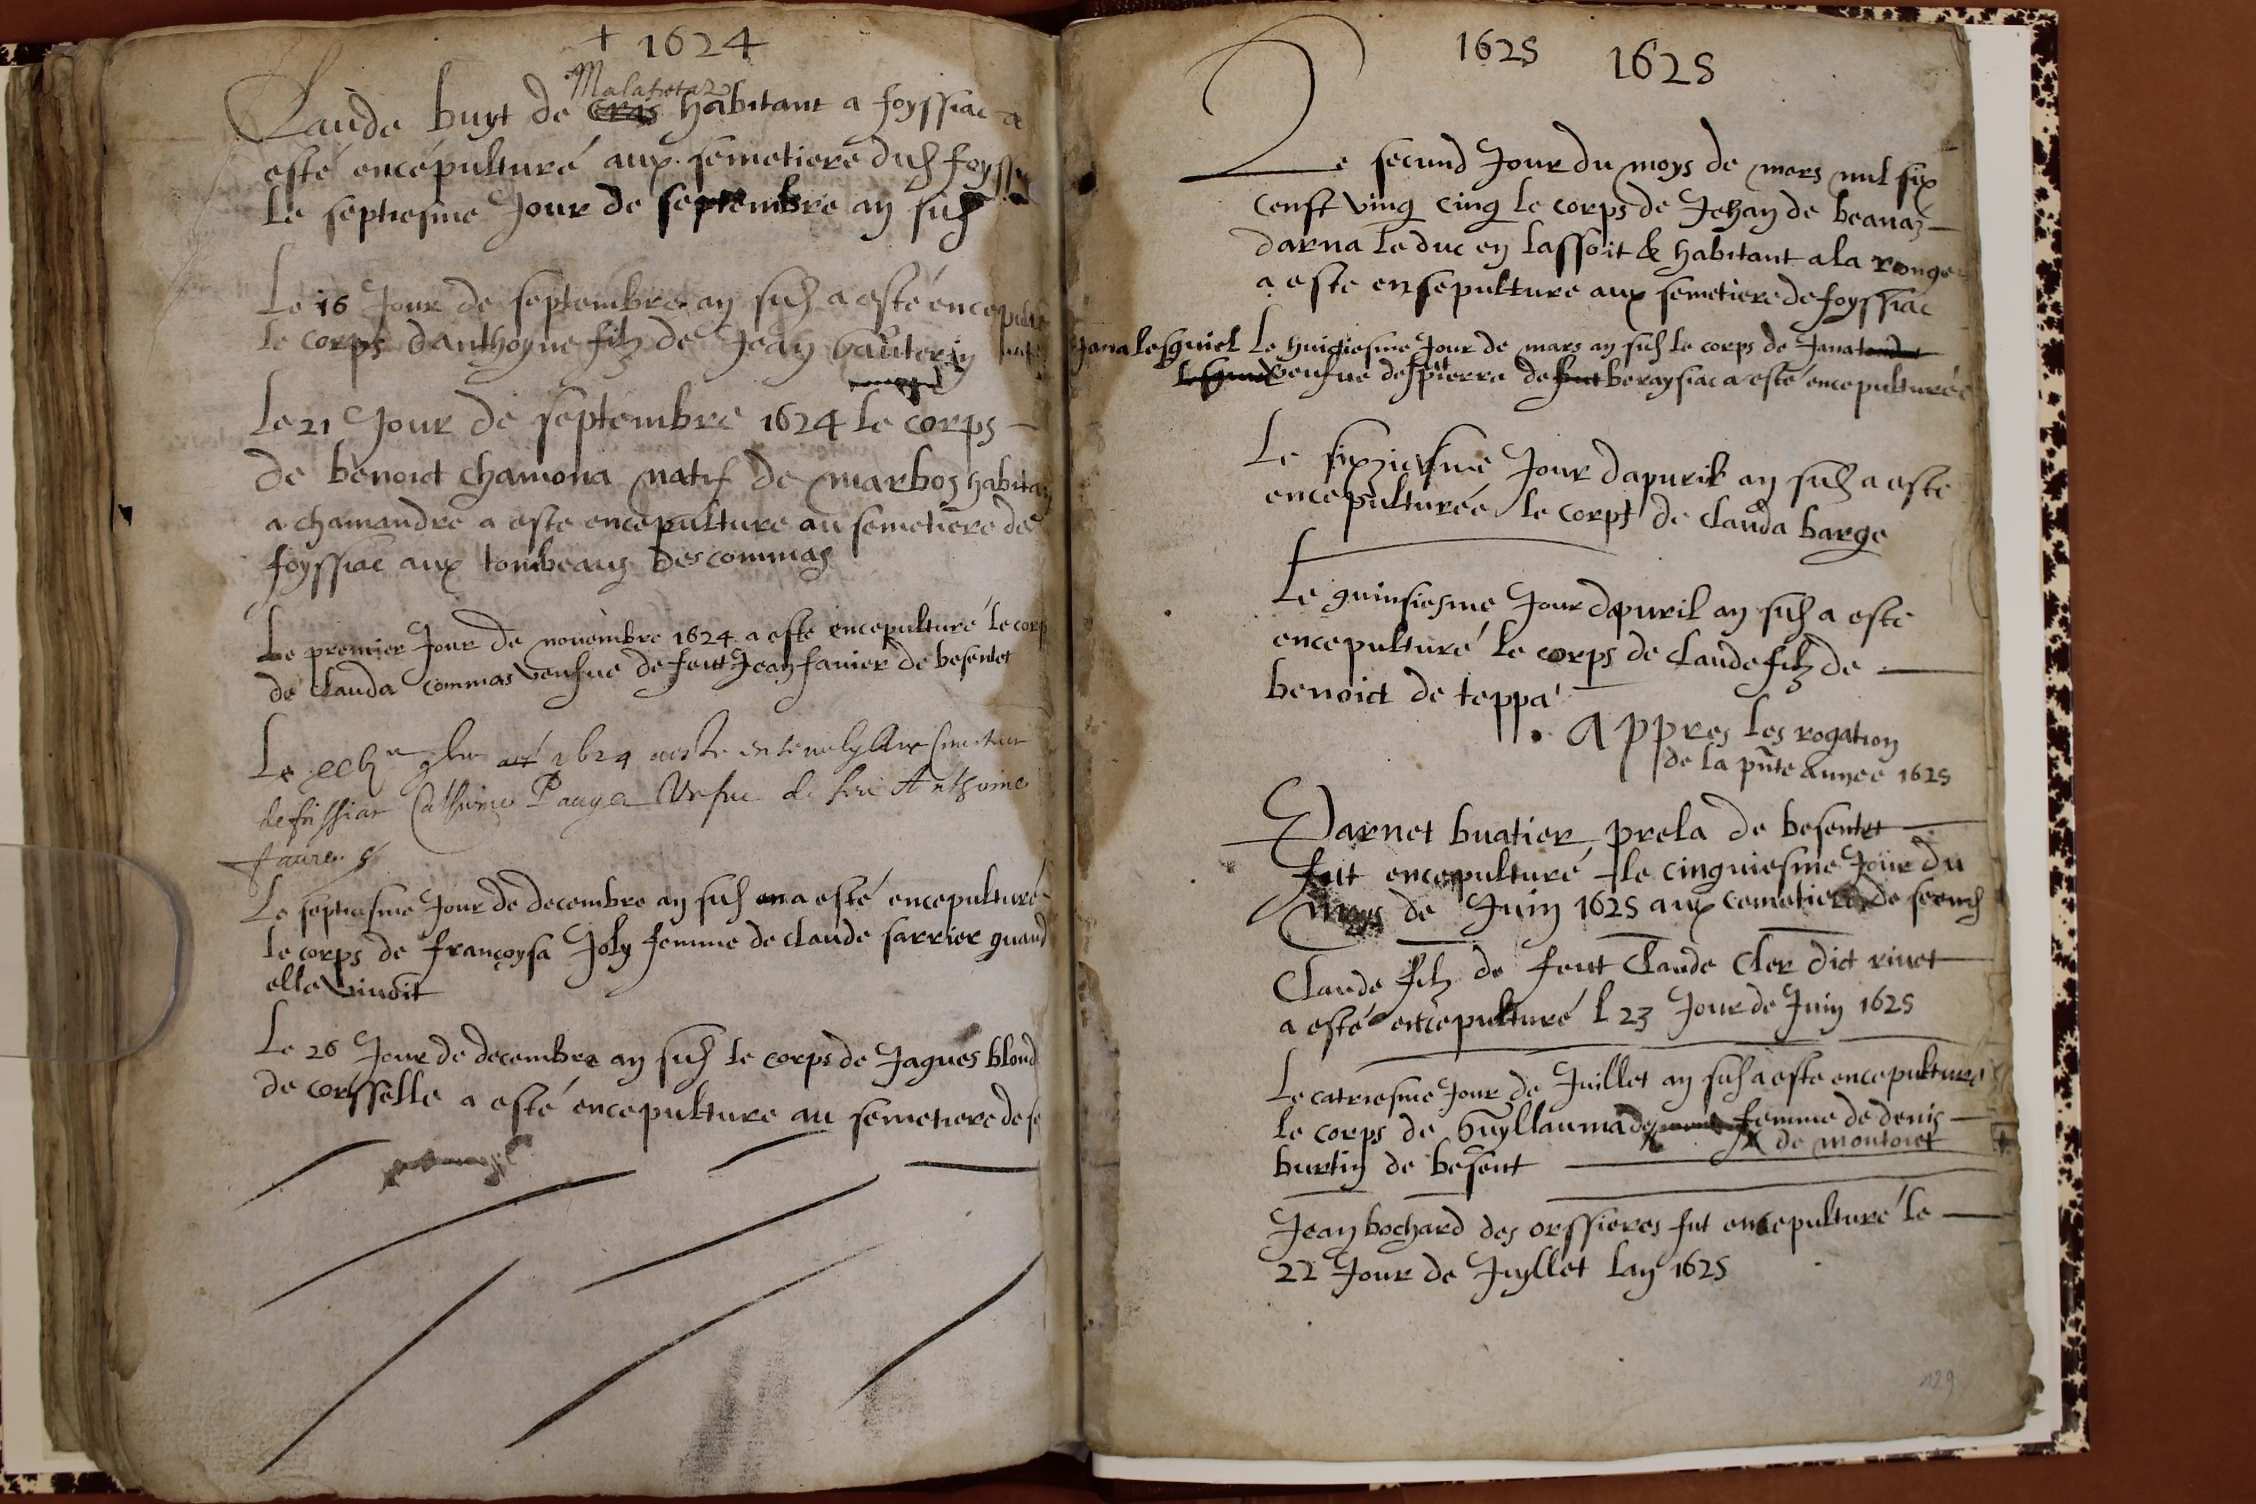 + 1624
Malafretaz
Claude buyt de cras habitant a foyssiac a
esté encépulturé aux semetiere dud foyss
Le septiesme Jour de septembre an sud
Le 16 Jour de septembre an sud a esté encepultu
le corps danthoyne filz de Jean Gauterin
Le 21 Jour de septembre 1624 le corps
de benoict chamona natif de marbos habitan
a chamandre a este encepulture au semetiere de
foyssiac aux tombeaus des commas
Le premier Jour de nouembre 1624 a este encepulturé le corp
de Clauda commas veufue de feut Jean fauier de besentet
Le 1624
de Anthoine
faure
Le septiesme Jour de decembre an sud a esté encepulturé
le corps de françoysa Joly femme de claude sarrier quand
elle viuoit
Le 26 Jour de decembre an sud le corps de Jaques blond
de corsselle a esté encepulture au semetiere de fo
1625 1625
Le secund Jour du moys de mars mil six
cenft ving cinq le corps de Jehan de beanaz
darna le duc en lassoit & habitant a la ronge
a este ensepulture aux semetiere de foyssiac
Jana lesguiel Le huigiesme Jour de mars an sud le corps de Jana
veufue de pierre de beraysiac a esté encepulturée
Le sixziesme Jour dapuril an sud a este
encepulturée le corps de clauda barge
Le quinsiesme Jour dapuril an sud a este
encepulturé le corps de claude filz de
benoict de teppa
Appres les rogation
de la pnte Annee 1625
Darnet buatier prela de besentet
fut encepulturé le cinquiesme Jour du
moys de Juin 1625 aux cemetiere de
Claude filz de feut Claude Cler dict riuet
a esté encepulturé l 23 Jour de Juin 1625
Le catriesme Jour de Juillet an sud a este encepulturé
le corps de Guyllauma de femme de denis
de montoret
burtin de besent
Jean bochard des orssieres fut encepulturé le
22 Jour de Juyllet lan 1625
129